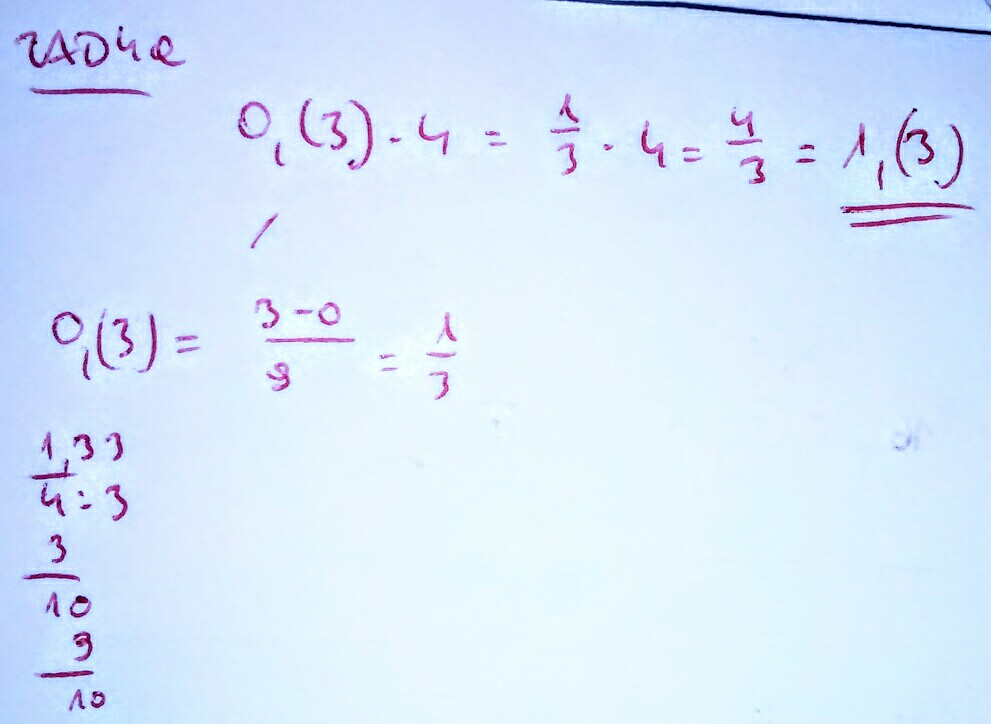 ZAD 4a
0,(3) · 4 = 1/3 · 4 = 4/3 = 1,(3)
0,(3) = 3-0/9 = 1/3
1,33
4:3
3
10
9
10